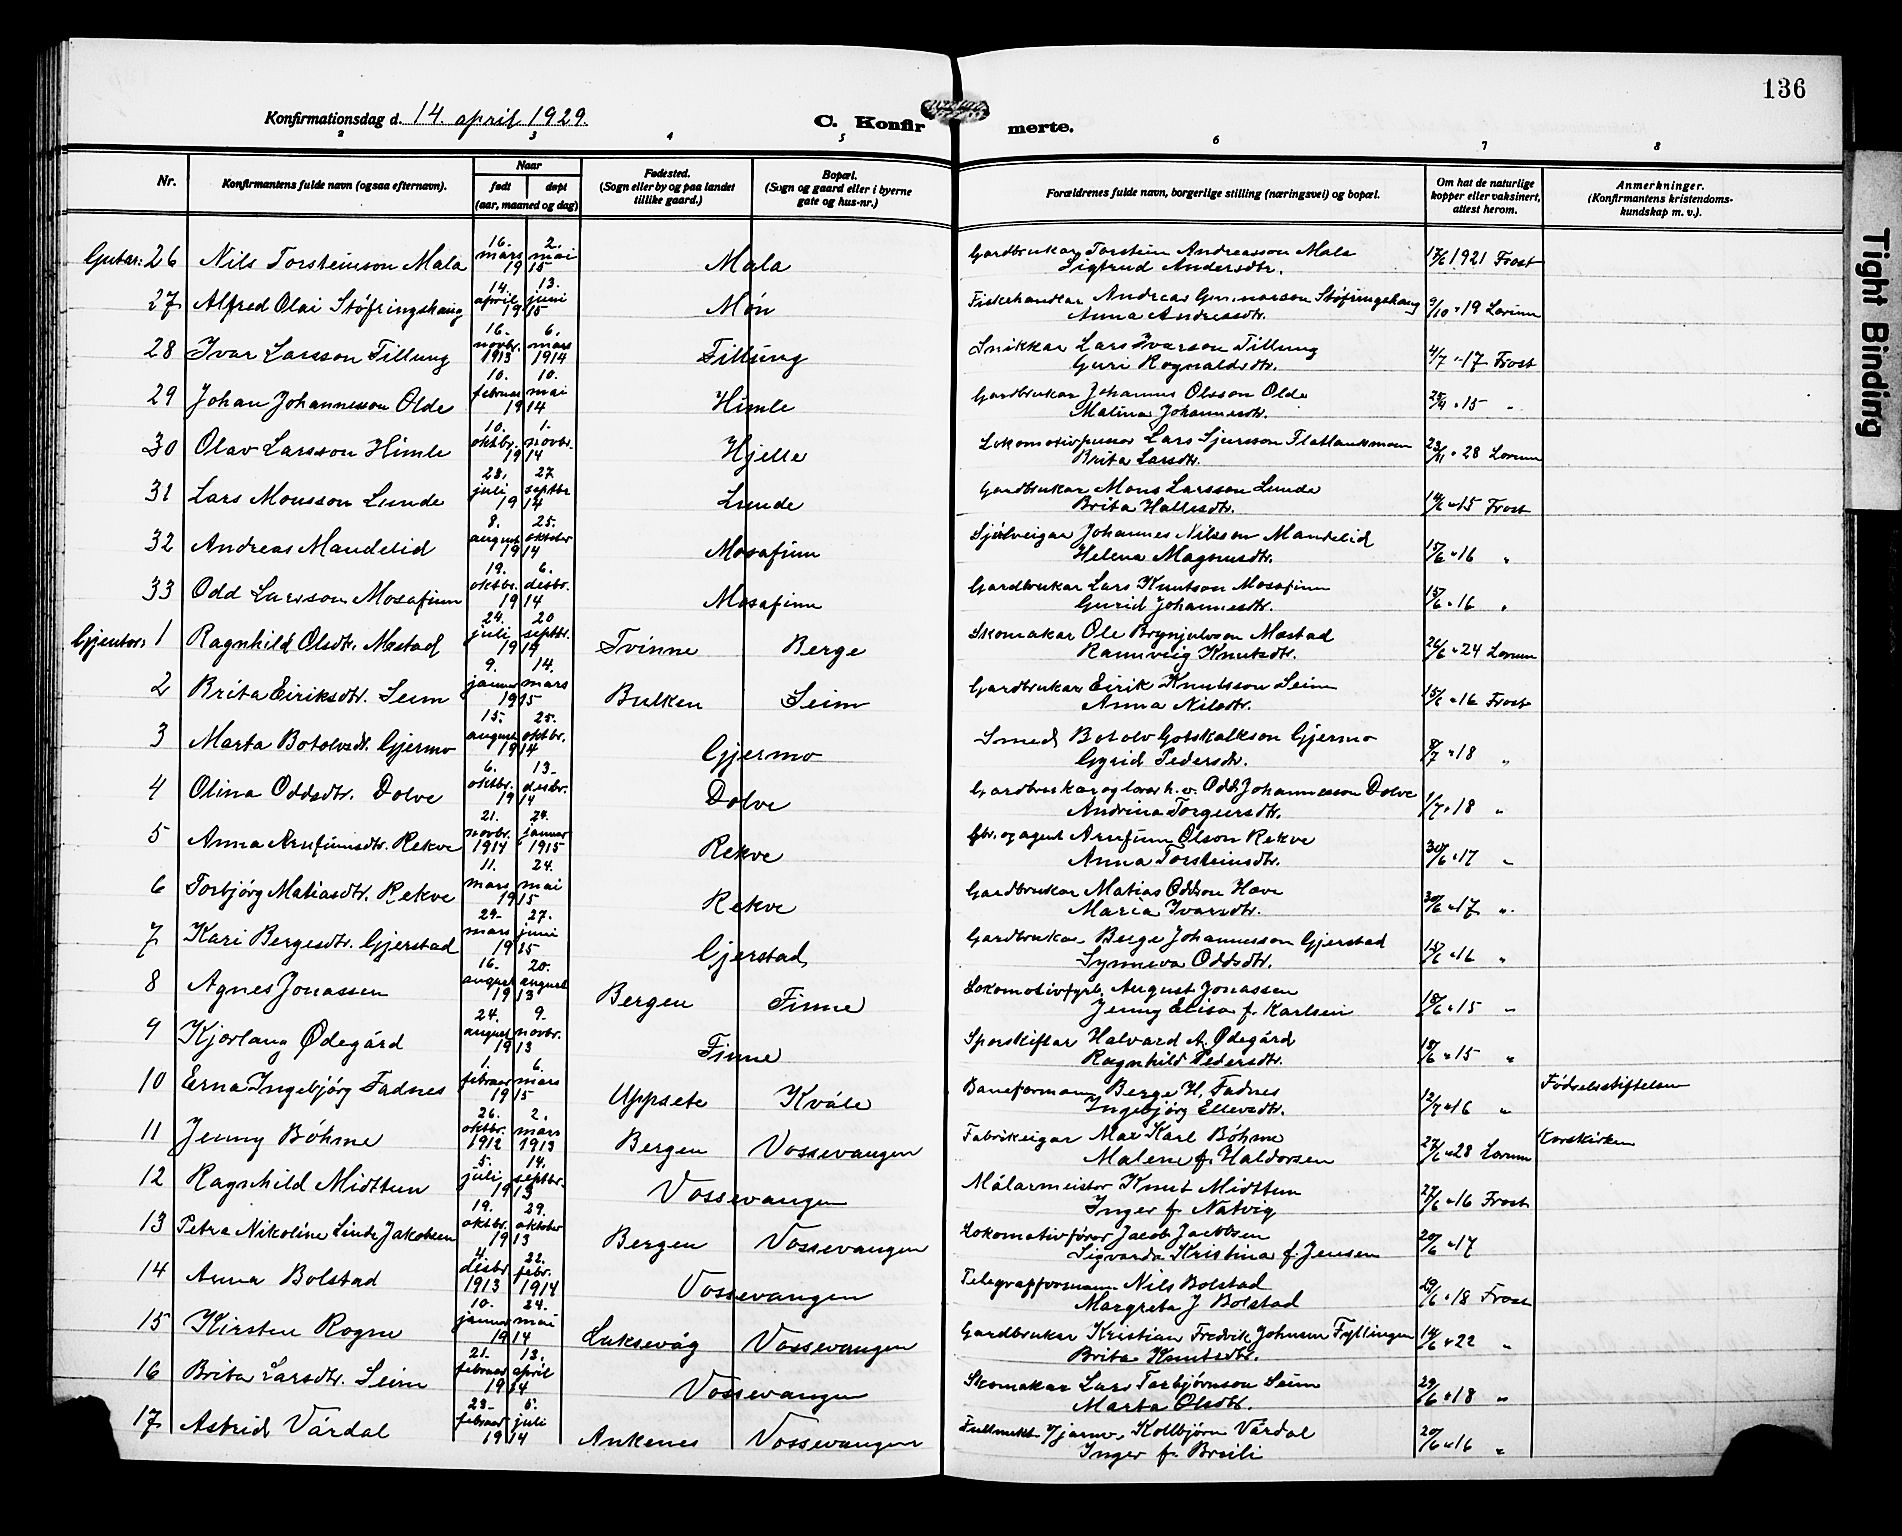 136
Konfirmationsdag d. 14. april 1929.
C. Konfirmerte.
2 3 4 5 6 7 8
Nr. | Konfirmantens fulde navn (ogsaa efternavn). | Naar født døpt (aar, maaned og dag) | Fødested. (Sogn eller by og paa landet tillike gaard.) | Bopæl. (Sogn og gaard eller i byerne gate og hus-nr.) | Forældrenes fulde navn, borgerlige stilling (næringsvei) og bopæl. | Om hat de naturlige kopper eller vaksinert, attest herom. | Anmerkninger. (Konfirmantens kristendomskundskap m. v.).
Gutar: 26 Nils Torsteinson Mala 16. mars 2. mai 1915 Mala Gardbrukar Torstein Andreasson Mala Sigtrud Andersdtr. 17/6 1921 Frost
27 Alfred Olai Støfringshaug 14. april 13. juni 1915 Møn Fiskehandlar Andreas Gunnarson Støfringshaug Anna Andreasdtr. 9/10 " 19 Lorum
28 Ivar Larsson Tillung 16. novbr. 1913 6. mars 1914 Tillung Snikkar Lars Ivarson Tillung Guri Rognaldsdtr. 4/7 " 17 Frost
29 Johan Johannesson Olde 10. februar 10. mai 1914 Himle Gardbrukar Johannes Olsson Olde Malina Johannesdtr. 25/9 " 15 "
30 Olav Larsson Himle 10. oktbr. 1. novbr. 1914 Hjelle Lokomotivpusser Lars Sjursson Flatlandsmoen Brita Larsdtr. 23/11 " 28 Lorum
31 Lars Monsson Lunde 28. juli 27. septbr 1914 Lunde Gardbrukar Mons Larsson Lunde Brita Hallesdtr. 14/6 " 15 Frost
32 Andreas Mandelid 8. august 25. oktober 1914 Mosafinn Sjølveigar Johannes Nilsson Mandelid Helena Magnusdtr. 15/6 " 16 "
33 Odd Larsson Mosafinn 19. oktbr. 6. desbr. 1914 Mosafinn Gardbrukar Lars Knutson Mosafinn Gurid Johannesdtr. 15/6 " 16 "
Gjentor: 1 Ragnhild Olsdtr. Mæstad 24. juli 20 septbr. 1914 Tvinne Berge Skomakar Ole Brynjulvson Mæstad Rannveig Knutsdtr. 26/6 " 24 Lorum
2 Brita Eiriksdtr. Seim 9. januar 14. mars 1915 Bulken Seim Gardbrukar Eirik Knutsson Seim Anna Nilsdtr. 15/6 " 16 Frost
3 Marta Botolvsdt. Gjermo 15. august 25. oktbr. 1914 Gjermo Smed Botolv Gotskalkson Gjermo Gyrid Pedersdtr. 8/7 " 18 "
4 Olina Oddsdtr. Dolve 6. oktbr. 13. desbr. 1914 Dolve Gardbrukar og lærar h. v. Odd Johannesson Dolve Andrina Torgersdtr. 1/7 " 18 "
5 Anna Arnfinnsdtr. Rekve 21. novbr. 1914 24. januar 1915 Rekve Gbr. og agent Arnfinn Olson Rekve Anna Torsteinsdtr. 30/6 " 17 "
6 Torbjørg Matiasdtr. Rekve 11. mars 24. mai 1915 Rekve Gardbrukar Matias Oddson Hæve Maria Ivarsdtr. 30/6 " 17 "
7 Kari Bergesdtr. Gjerstad 29. mars 27. juni 1915 Gjerstad Gardbrukar Berge Johannesson Gjerstad Synneva Oddsdtr. 15/6 " 16 "
8 Agnes Jonassen 16. august 20. august 1913 Bergen Finne Lokomotivfyrb. August Jonassen Jenny Elisa f. Karlsen 18/6 " 15 "
9 Kjørlaug Ødegård 24. august 9. novbr. 1913 Finne Sporskiftar Halvard A. Ødegård Ragnhild Pedersdtr. 18/6 " 15 "
10 Erna Ingebjørg Fadnes 1. februar 6. mars 1915 Uppsete Kvåle Baneformann Berge H. Fadnes Ingebjørg Ellevsdtr. 12/7 " 16 " Fødselsstiftelsen
11 Jenny Bøhme 26. oktbr. 1912 2. mars 1913 Bergen Vossevangen Fabrikeigar Max Karl Bøhme Malene f. Haldorsen 27/6 " 28 Lorum Korskirken
12 Ragnhild Midttun 5. juli 14. septbr. 1913 Vossevangen Målarmeister Knut Midttun Inger f. Natvig 27/6 " 16 Frost
13 Petra Nikoline Linde Jakobsen 19. oktbr. 29. oktober 1913 Bergen Vossevangen Lokomotivfører Jacob Jacobsen Sigvarda Kristina f. Jensen 20/6 " 17
14 Anna Bolstad 4. desbr 1913 22. febr. 1914 Vossevangen Telegrafformann Nils Bolstad Margreta J Bolstad 29/6 " 18 Frost
15 Kirsten Rogne 10. januar 24. mai 1914 Laksevåg Vossevangen Gardbrukar Kristian Fredrik Johnsen Fyllingen Brita Knutsdtr. 14/6 " 22 "
16 Brita Larsdtr. Seim 21. februar 13. april 1914 Vossevangen Skomakar Lars Torbjørnson Seim Marta Olsdtr. 29/6 " 18 "
17 Astrid Vårdal 23. februar 5. juli 1914 Ankenes Vossevangen Fullmekt. v/jarnv. Kolbjørn Vårdal Inger f. Breili 20/6 " 16 "
Tight Binding